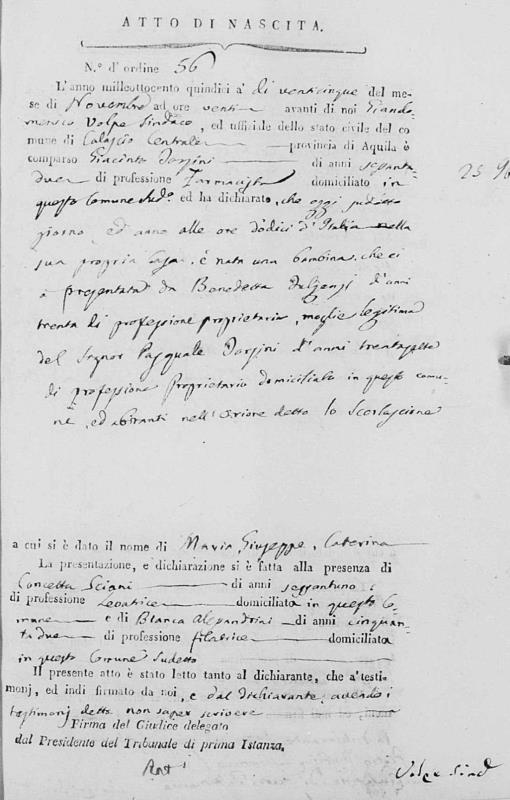 ATTO DI NASCITA.
N.º d'ordine 56
L'anno milleottocento quindici a' di venticinque del me-
se di Novembre ad ore venti avanti di noi Giando-
menico Volpe Sindaco, ed uffiziale dello stato civile del co
mune di Calascio Centrale provincia di Aquila è
comparso Giacinto di anni settanta
due di professione Farmacista domiciliato in
questo Comune sud.º ed ha dichiarato, che oggi sudetto
giorno, ed anno alle ore dodici d'Italia nella
sua propria casa, è nata una bambina, che ci
à presentata da Benedetta d'anni
trenta di professione proprietaria, moglie legitima
del Signor Pasquale d'anni trentasette
di professione Proprietario domiciliato in questo comu-
ne, ed abitanti nell' detto lo
a cui si è dato il nome di Maria Giuseppe, Caterina
La presentazione, e dichiarazione si è fatta alla presenza di
Concetta Sciani di anni sessantuno
di professione Levatrice domiciliata in questo Co-
mune e di Bianca Alesandrini di anni cinquan-
tadue di professione filatrice domiciliata
in questo Comune sudetto
Il presente atto è stato letto tanto al dichiarante, che a' testi-
monj, ed indi firmato da noi, e dal dichiarante, avendo i
testimonj detto non saper scrivere
Firma del Giudice delegato
dal Presidente del Tribunale di prima Istanza.
Volpe Sind